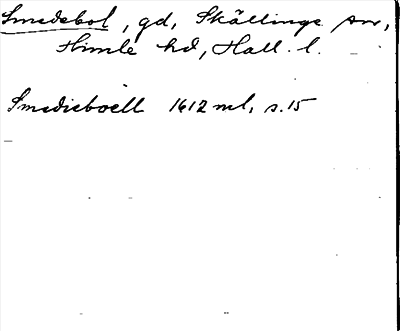 Smedebol, gd, Skällinge sn,
Himle hd, Hall. l.
Smedieboell 1612 ml, s. 15